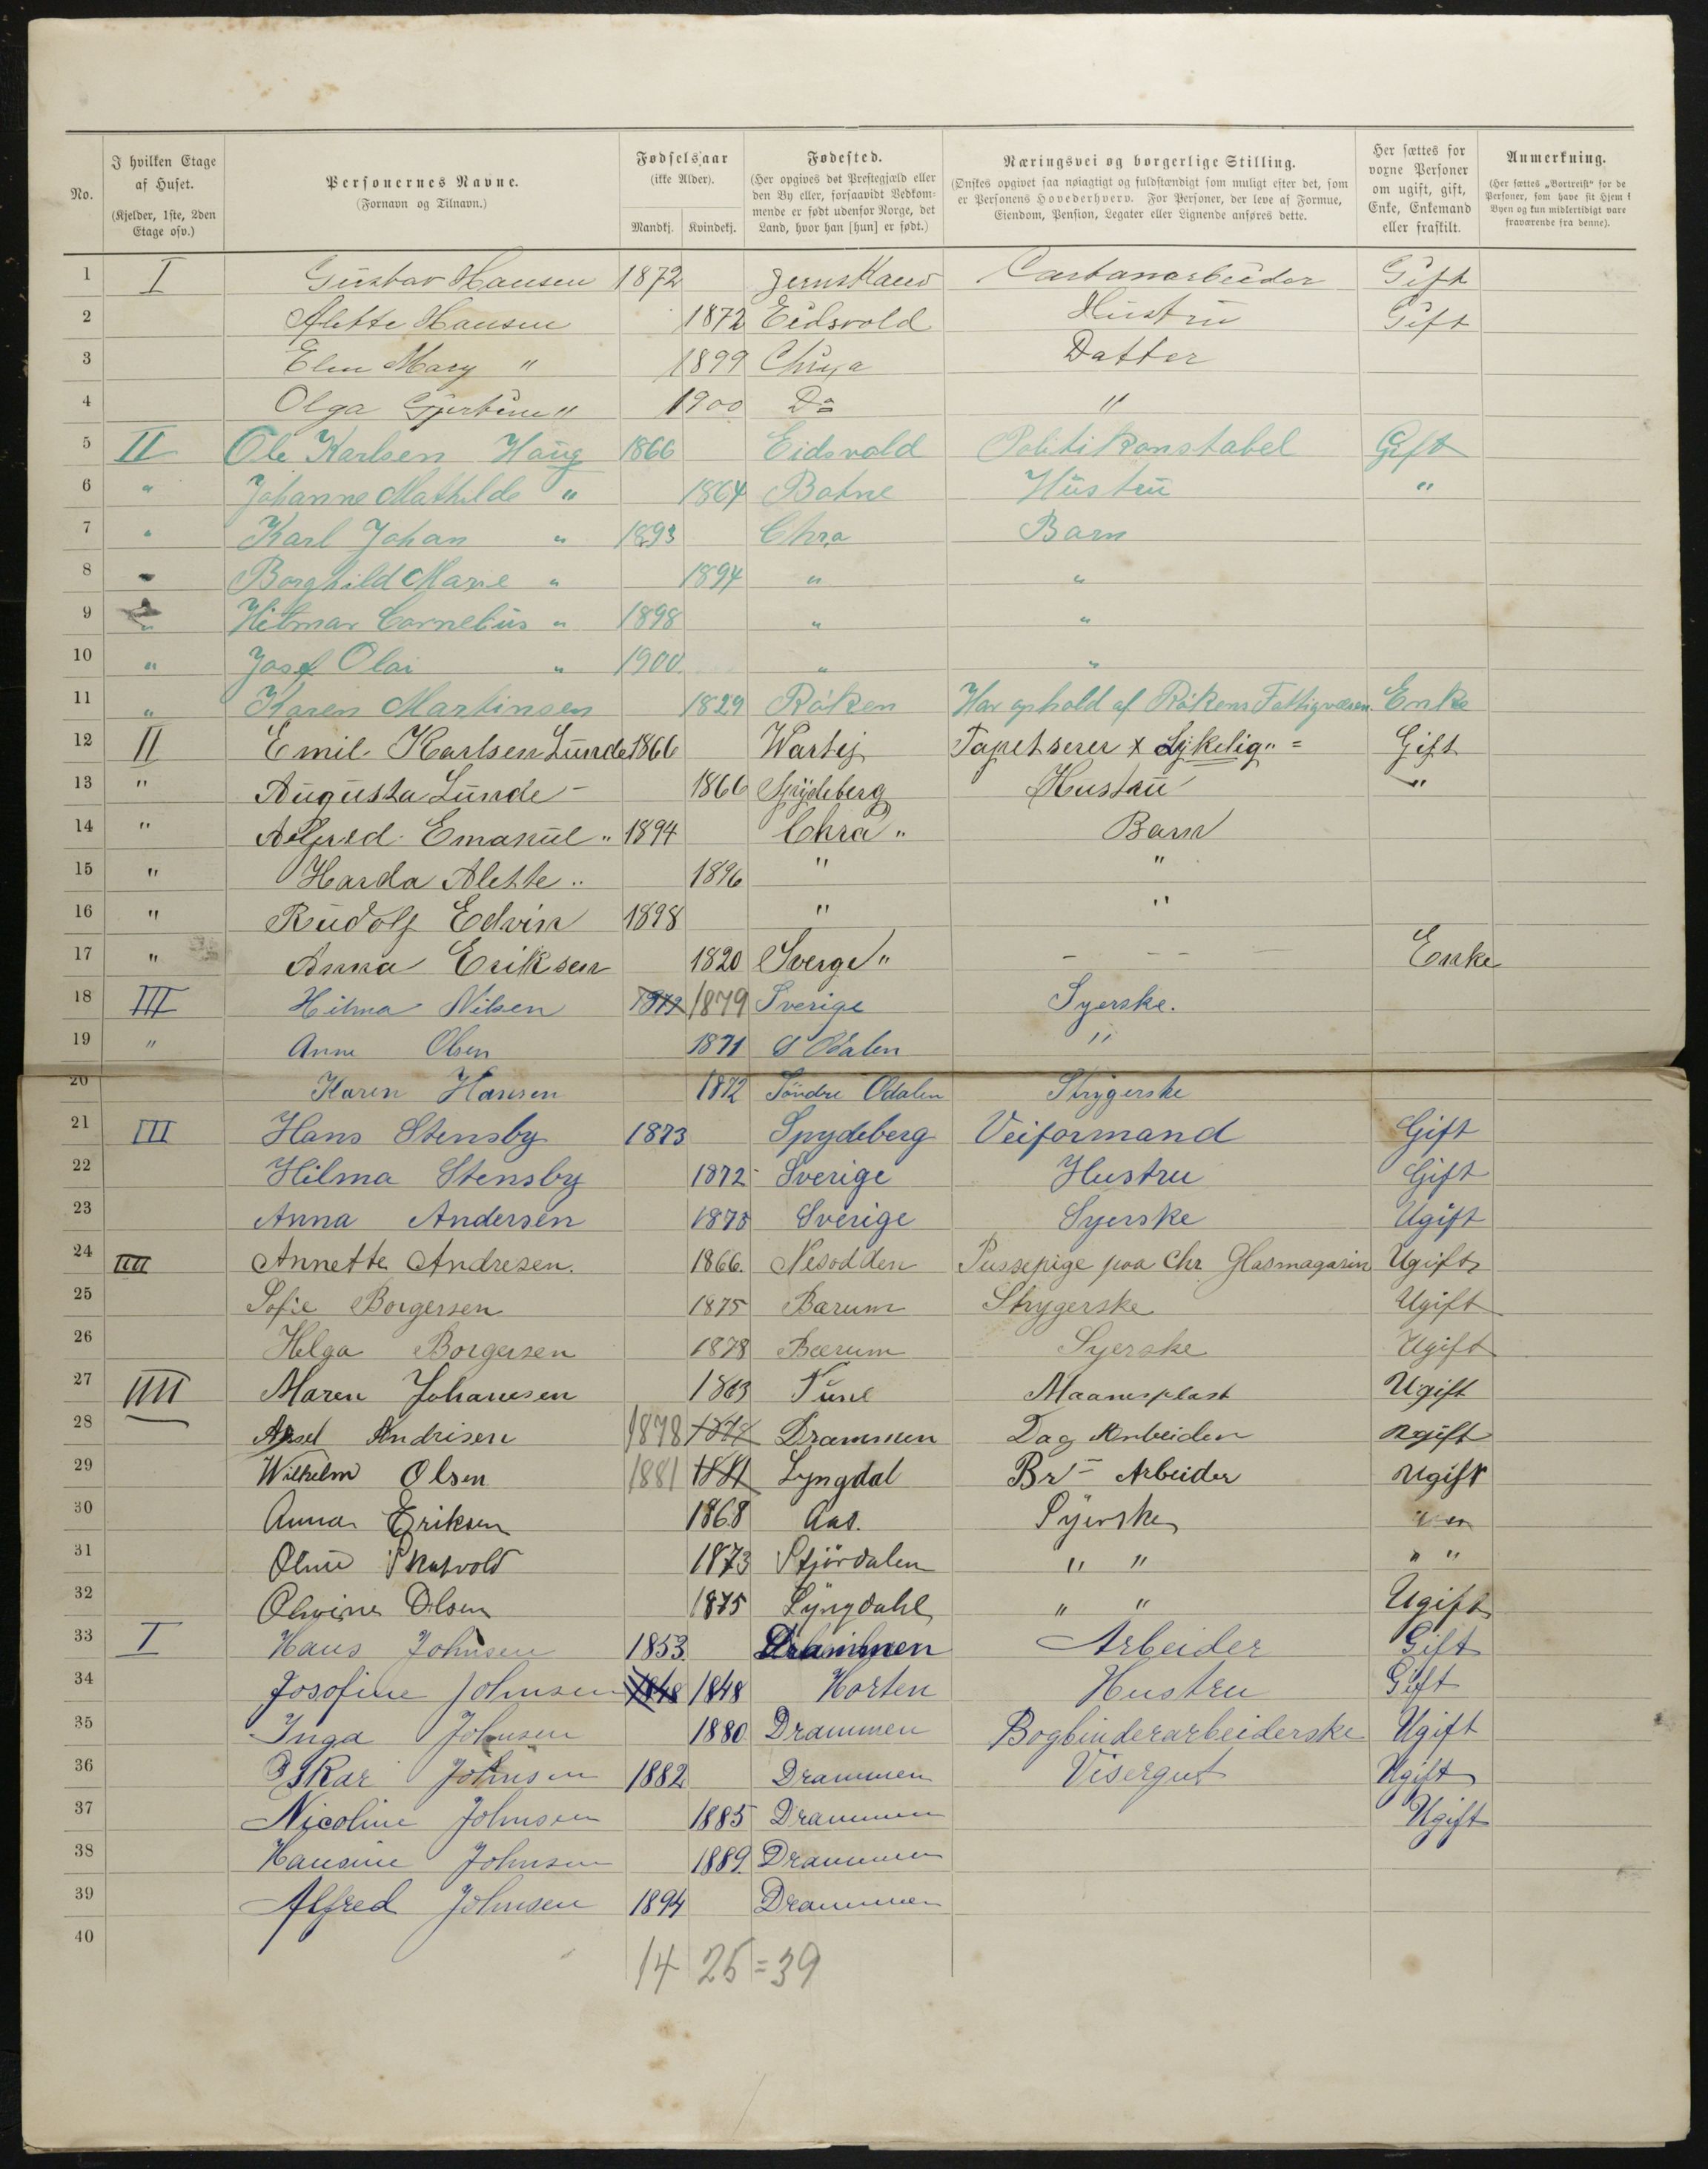 No.
I hvilken Etage af Huset. (Kjelder, 1ste, 2den Etage osv.)
Personernes Navne. (Fornavn og Tilnavn.)
Fødselsaar (ikke Alder). Mandkj. Kvindekj.
Fødested. (Her opgives det Prestegjæld eller den By eller, forsaavidt Vedkommende er født udenfor Norge, det Land, hvor han [hun] er født.)
Næringsvei og borgerlige Stilling. (Ønskes opgivet saa nøiagtigt og fuldstændigt som muligt efter det, som er Personens Hovederhverv. For Personer, der leve af Formue, Eiendom, Pension, Legater eller Lignende anføres dette.
Her sættes for voxne Personer om ugift, gift, Enke, Enkemand eller fraskilt.
Anmerkning. (Her sættes „Bortreist“ for de Personer, som have sit Hjem i Byen og kun midlertidigt være fraværende fra denne).
1 I Gustav Hansen 1872 Gift
2 Alette Hansen 1872 Eidsvold Hustru Gift
3 Elen Mary " 1899 Datter
4 Olga " 1900 Do "
5 II Ole Karlsen Haug 1866 Eidsvold Politikonstabel Gift
6 " Johanne Mathilde " 1864 Botne Hustru "
7 " Karl Johan " 1893 Chra Barn
8 " Borghild Marie " 1894 " "
9 " Hilmar Cornelius " 1898 " "
10 " Josef Olai " 1900 " "
11 " Karen Martinsen 1829 Röken Har ophold af Rökens Fattigvæsen. Enke
12 II Emil Karlsen Lunde 1866 Tapetserer x Gift
13 " Augusta Lunde - 1866 Spydeberg Hustru "
14 " Alfred Emanuel " 1894 Chra " Barn
15 " Harda Alette " 1896 " "
16 " Rudolf Edvin 1898 " "
17 " Anna Eriksen 1820 Sverge " - - - Enke
18 III Hilma Nilsen 1879 1879 Sverige Syerske.
19 " Anne Olsen 1871 S Odalen "
20 Karen Hansen 1872 Söndre Odalen Strygerske
21 III Hans Stensby 1873 Spydeberg Veiformand Gift
22 Hilma Stensby 1872 Sverige Hustru Gift
23 Anna Andersen 1878 Sverige Syerske Ugift
24 IIII Annette Andresen. 1866. Nesodden Pussepige paa Chr Glasmagasin Ugift
25 Sofie Borgersen 1875 Barum Strygerske Ugift
26 Helga Borgersen 1878 Bærum Syerske Ugift
27 IIII Maren Johansen 1863 Tune Ugift
28 Aksel Andrisen 1878 1878 Drammen Dag Arbeiden ugift
29 Wilhelm Olsen 1881 1881 Lyngdal Br Arbeider ugift
30 Anna Eriksen 1868 Aas. Syerske
31 Skatvold 1873 Stjördalen " " " "
32 Olsen 1875 Lyngdahl " " Ugift
33 I Hans Johnsen 1853. Drammen Arbeider Gift
34 Josofine Johnsen 1848 1848 Horten Hustru Gift
35 Inga Johnsen 1880 Drammen Bogbinderarbeiderske Ugift
36 Oskar Johnsen 1882 Drammen Visergut Ugift
37 Nicoline Johnsen 1885 Drammen Ugift
38 Hansine Johnsen 1889. Drammen
39 Alfred Johnsen 1894 Drammen
40
14 25 = 39